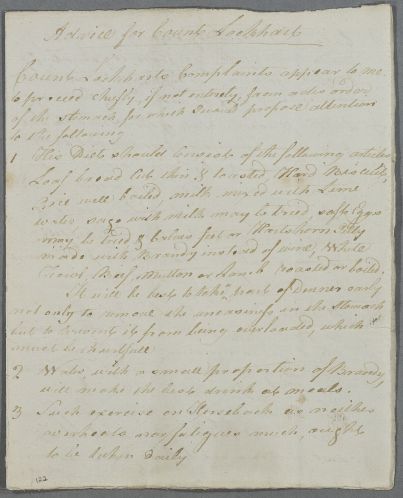 Advice for Count Lockhart
Count Lockharts Complaints appear to me
to proceed chiefly, if not entirely, from a disorder
of the stomach, for which I would propose attention
to the following
1 His Diet should consist of the following articles
Loaf bread Cut thin & toasted, Hard Biscuit,
Rice well boiled, milk mixed with Lime
water, sago with milk may be tried, soft Eggs
may be tried, & Calves feet or Hartshorn Jelly
made with Brandy instead of wine, White
Fowl, Beef, Mutton or roasted or boiled.
It will be best to take part of Dinner early
not only to remove the uneasiness in the stomach
but to prevent it from being overloaded which
must be hurtfull
2 Water with a small proportion of Brandy,
will make the best drink at meals.
3 Such exercise on Horseback as neither
overheats nor fatigues much, ought
to be taken daily
122